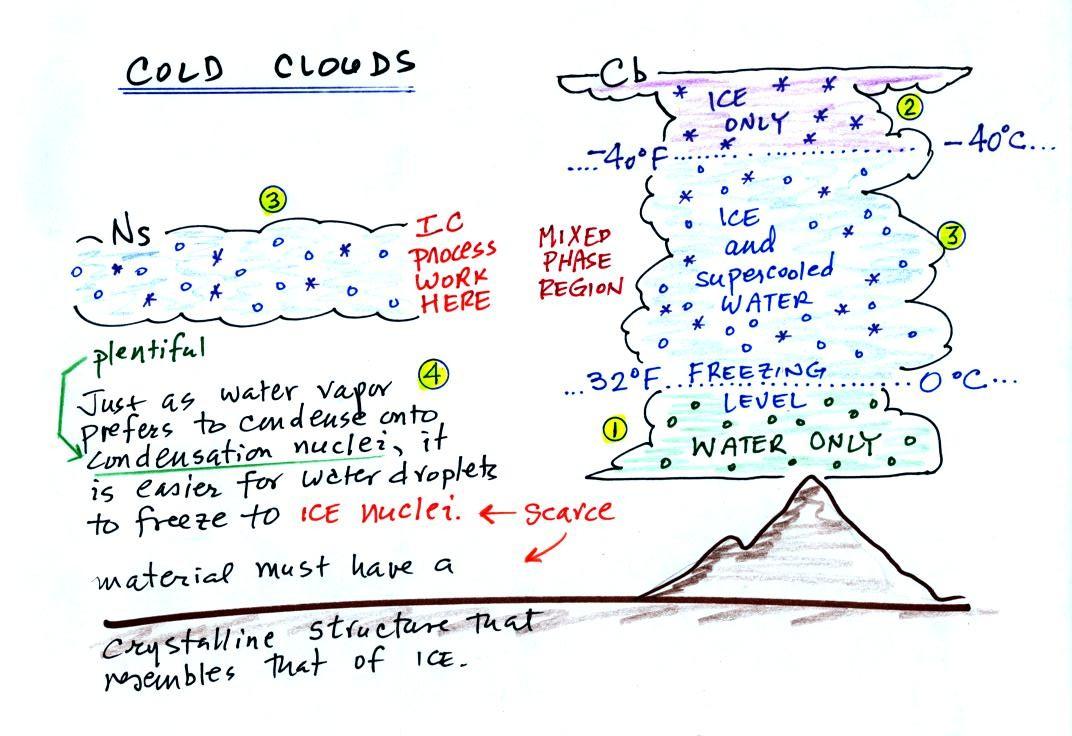 COLD CLOUDS
3
Ns
IC
PROCESS
WORK
HERE
plentiful
4
Just as water vapor
prefers to condense onto
condensation nuclei, it
is easier for water droplets
to freeze to ICE nuclei. ← scarce
material must have a
crystalline structure that
resembles that of ICE.
Cb
ICE
ONLY
2
....-40°F........ -40°C...
MIXED
PHASE
REGION
ICE
and
supercooled
WATER
3
...32°F.. FREEZING ......0°C...
LEVEL
1
WATER ONLY